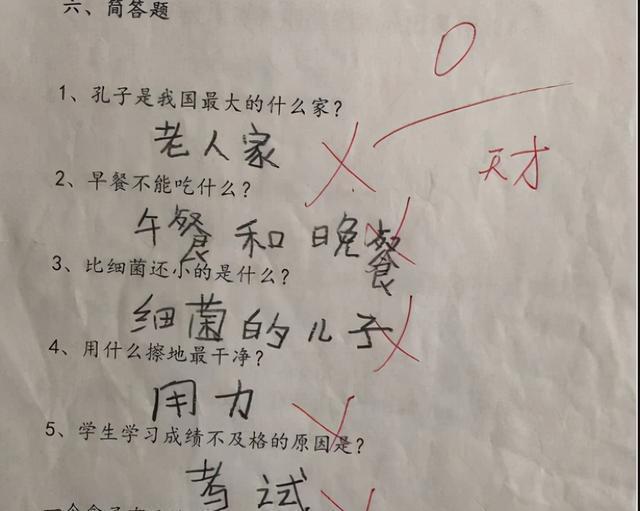 六、简答题
0
1、孔子是我国最大的什么家？
老人家
天才
2、早餐不能吃什么？
午餐和晚餐
3、比细菌还小的是什么？
细菌的儿子
4、用什么擦地最干净？
用力
5、学生学习成绩不及格的原因是？
考试